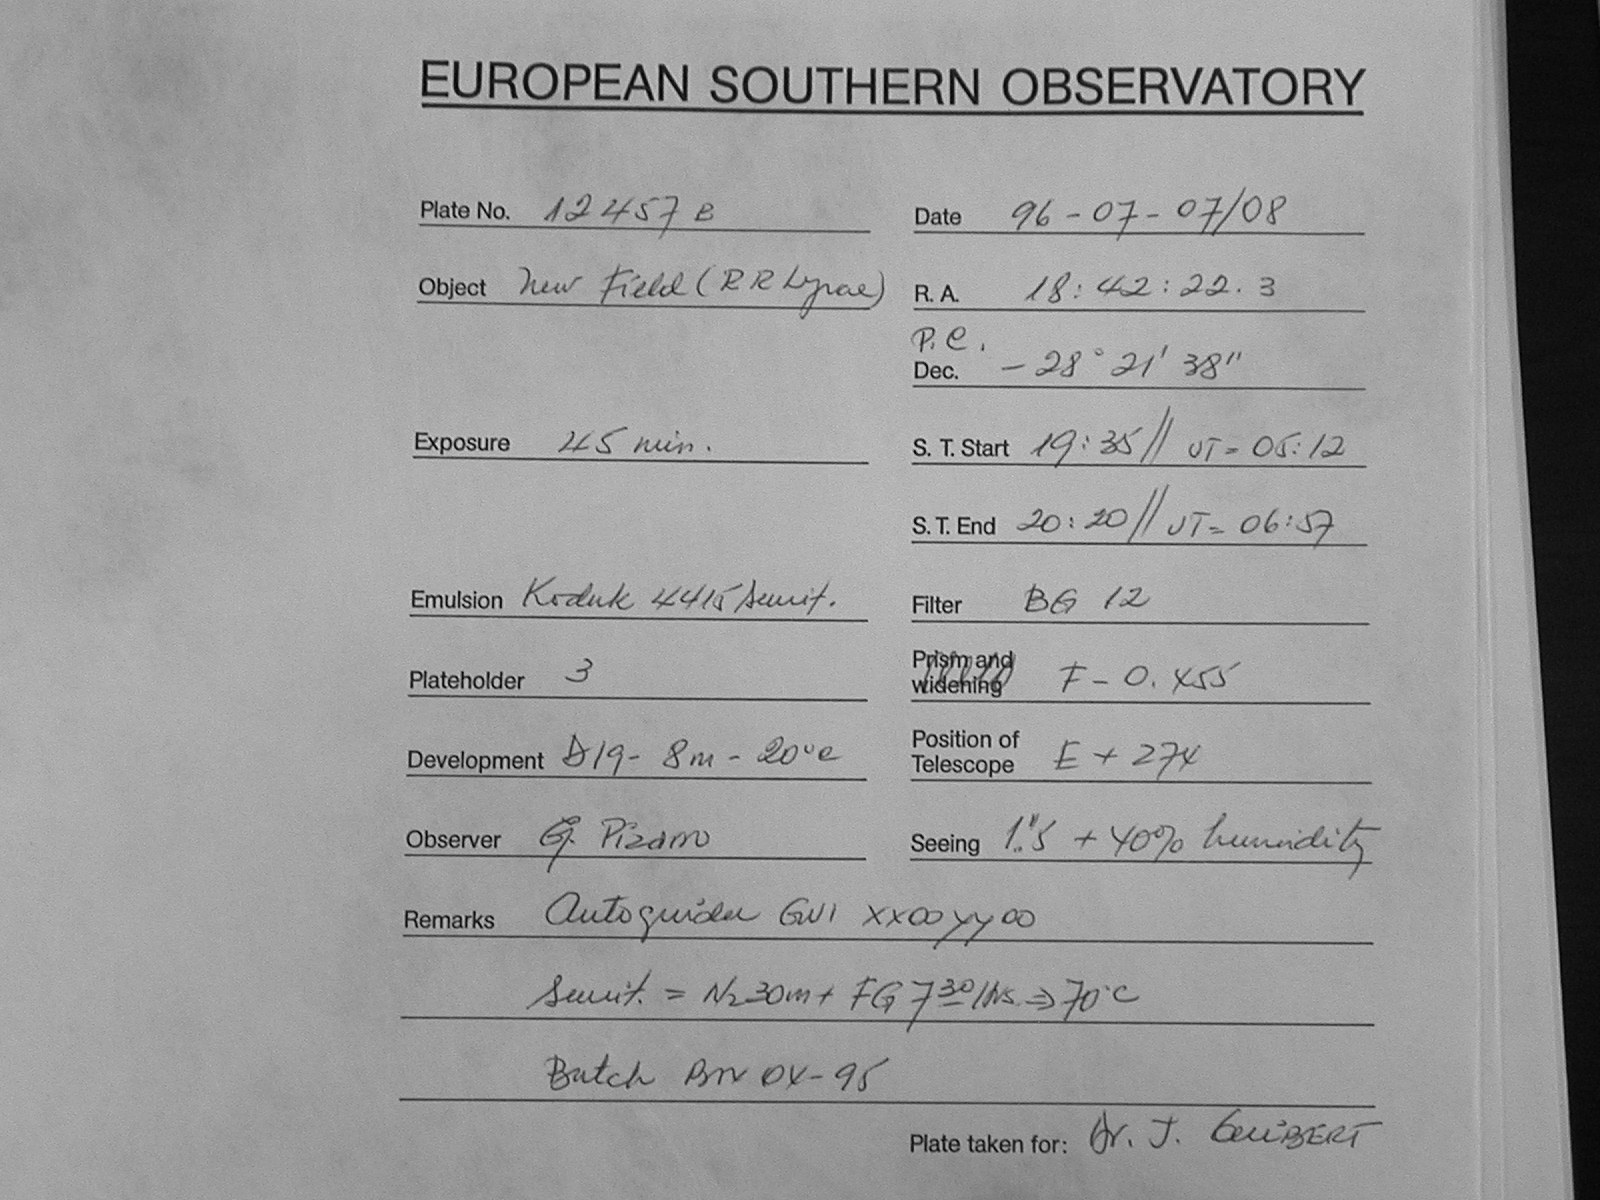 EUROPEAN SOUTHERN OBSERVATORY
Plate No. 12457 B
Date 96-07-07/08
Object New Field (RR Lyrae)
R. A. 18:42:22.3
P.C.
Dec. -28° 21' 38"
Exposure 45 min.
S. T. Start 19:35 // UT= 05:12
S. T. End 20:20 // UT= 06:57
Emulsion Kodak 4415 Sensit.
Filter BG 12
Plateholder 3
Prism and
widening F-0.455
Development D19- 8m - 20°C
Position of
Telescope E + 274
Observer G. Pizarro
Seeing 1."5 + 40% humidity
Remarks Autoguider GW1 XX00YY00
Sensit. = N2 30m + FG 7 30 Hrs. => 70°C
Batch 04-95
Plate taken for: Dr. J. GUIBERT